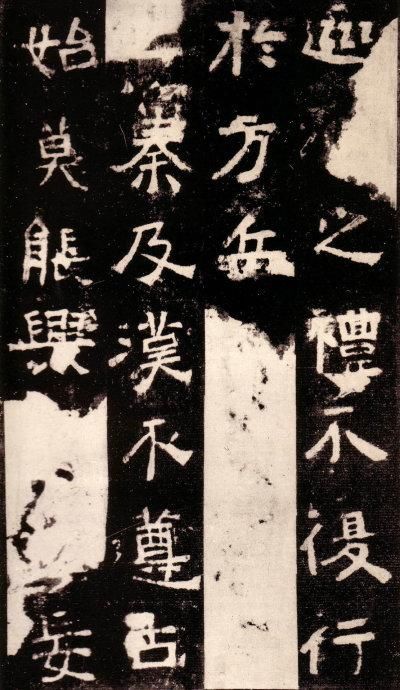 巡之禮不復行
於方岳
秦及漢不遵古
始莫能舉妄